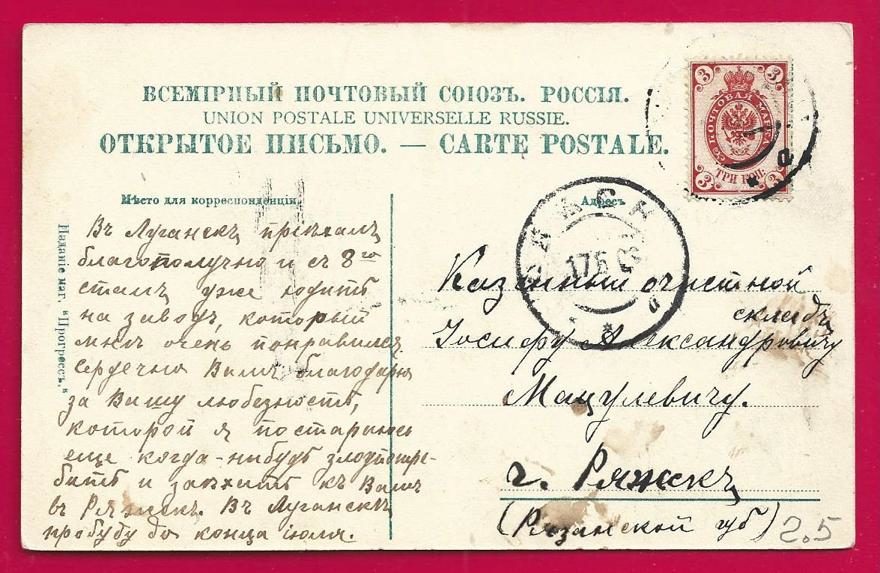 ВСЕМІРНЫЙ ПОЧТОВЫЙ СОЮЗЪ. РОССІЯ.
UNION POSTALE UNIVERSELLE RUSSIE.
ОТКРЫТОЕ ПИСЬМО. — CARTE POSTALE.
3 3
ПОЧТОВАЯ МАРКА
ТРИ КОП.
3 3
а
Мѣсто для корреспонденціи
Адресъ
Изданіе маг. "Прогрессъ."
Въ Луганскъ пріѣхалъ
благополучно и съ 8го
сталъ уже ходить
на заводъ, который
мнѣ очень понравился
сердечно Вамъ благодарю
за Вашу любезность,
которой я постараюсь
еще когда-нибудь злоупотре-
бить и заѣхать къ Вамъ
въ Ряжскъ. Въ Луганскѣ
пробуду до конца іюля.
РЯЖСК
17 6
б
Казенный очистной
складъ
Іосифу Александровичу
Мацулевичу.
г. Ряжскъ
(Рязанской губ)
2.5